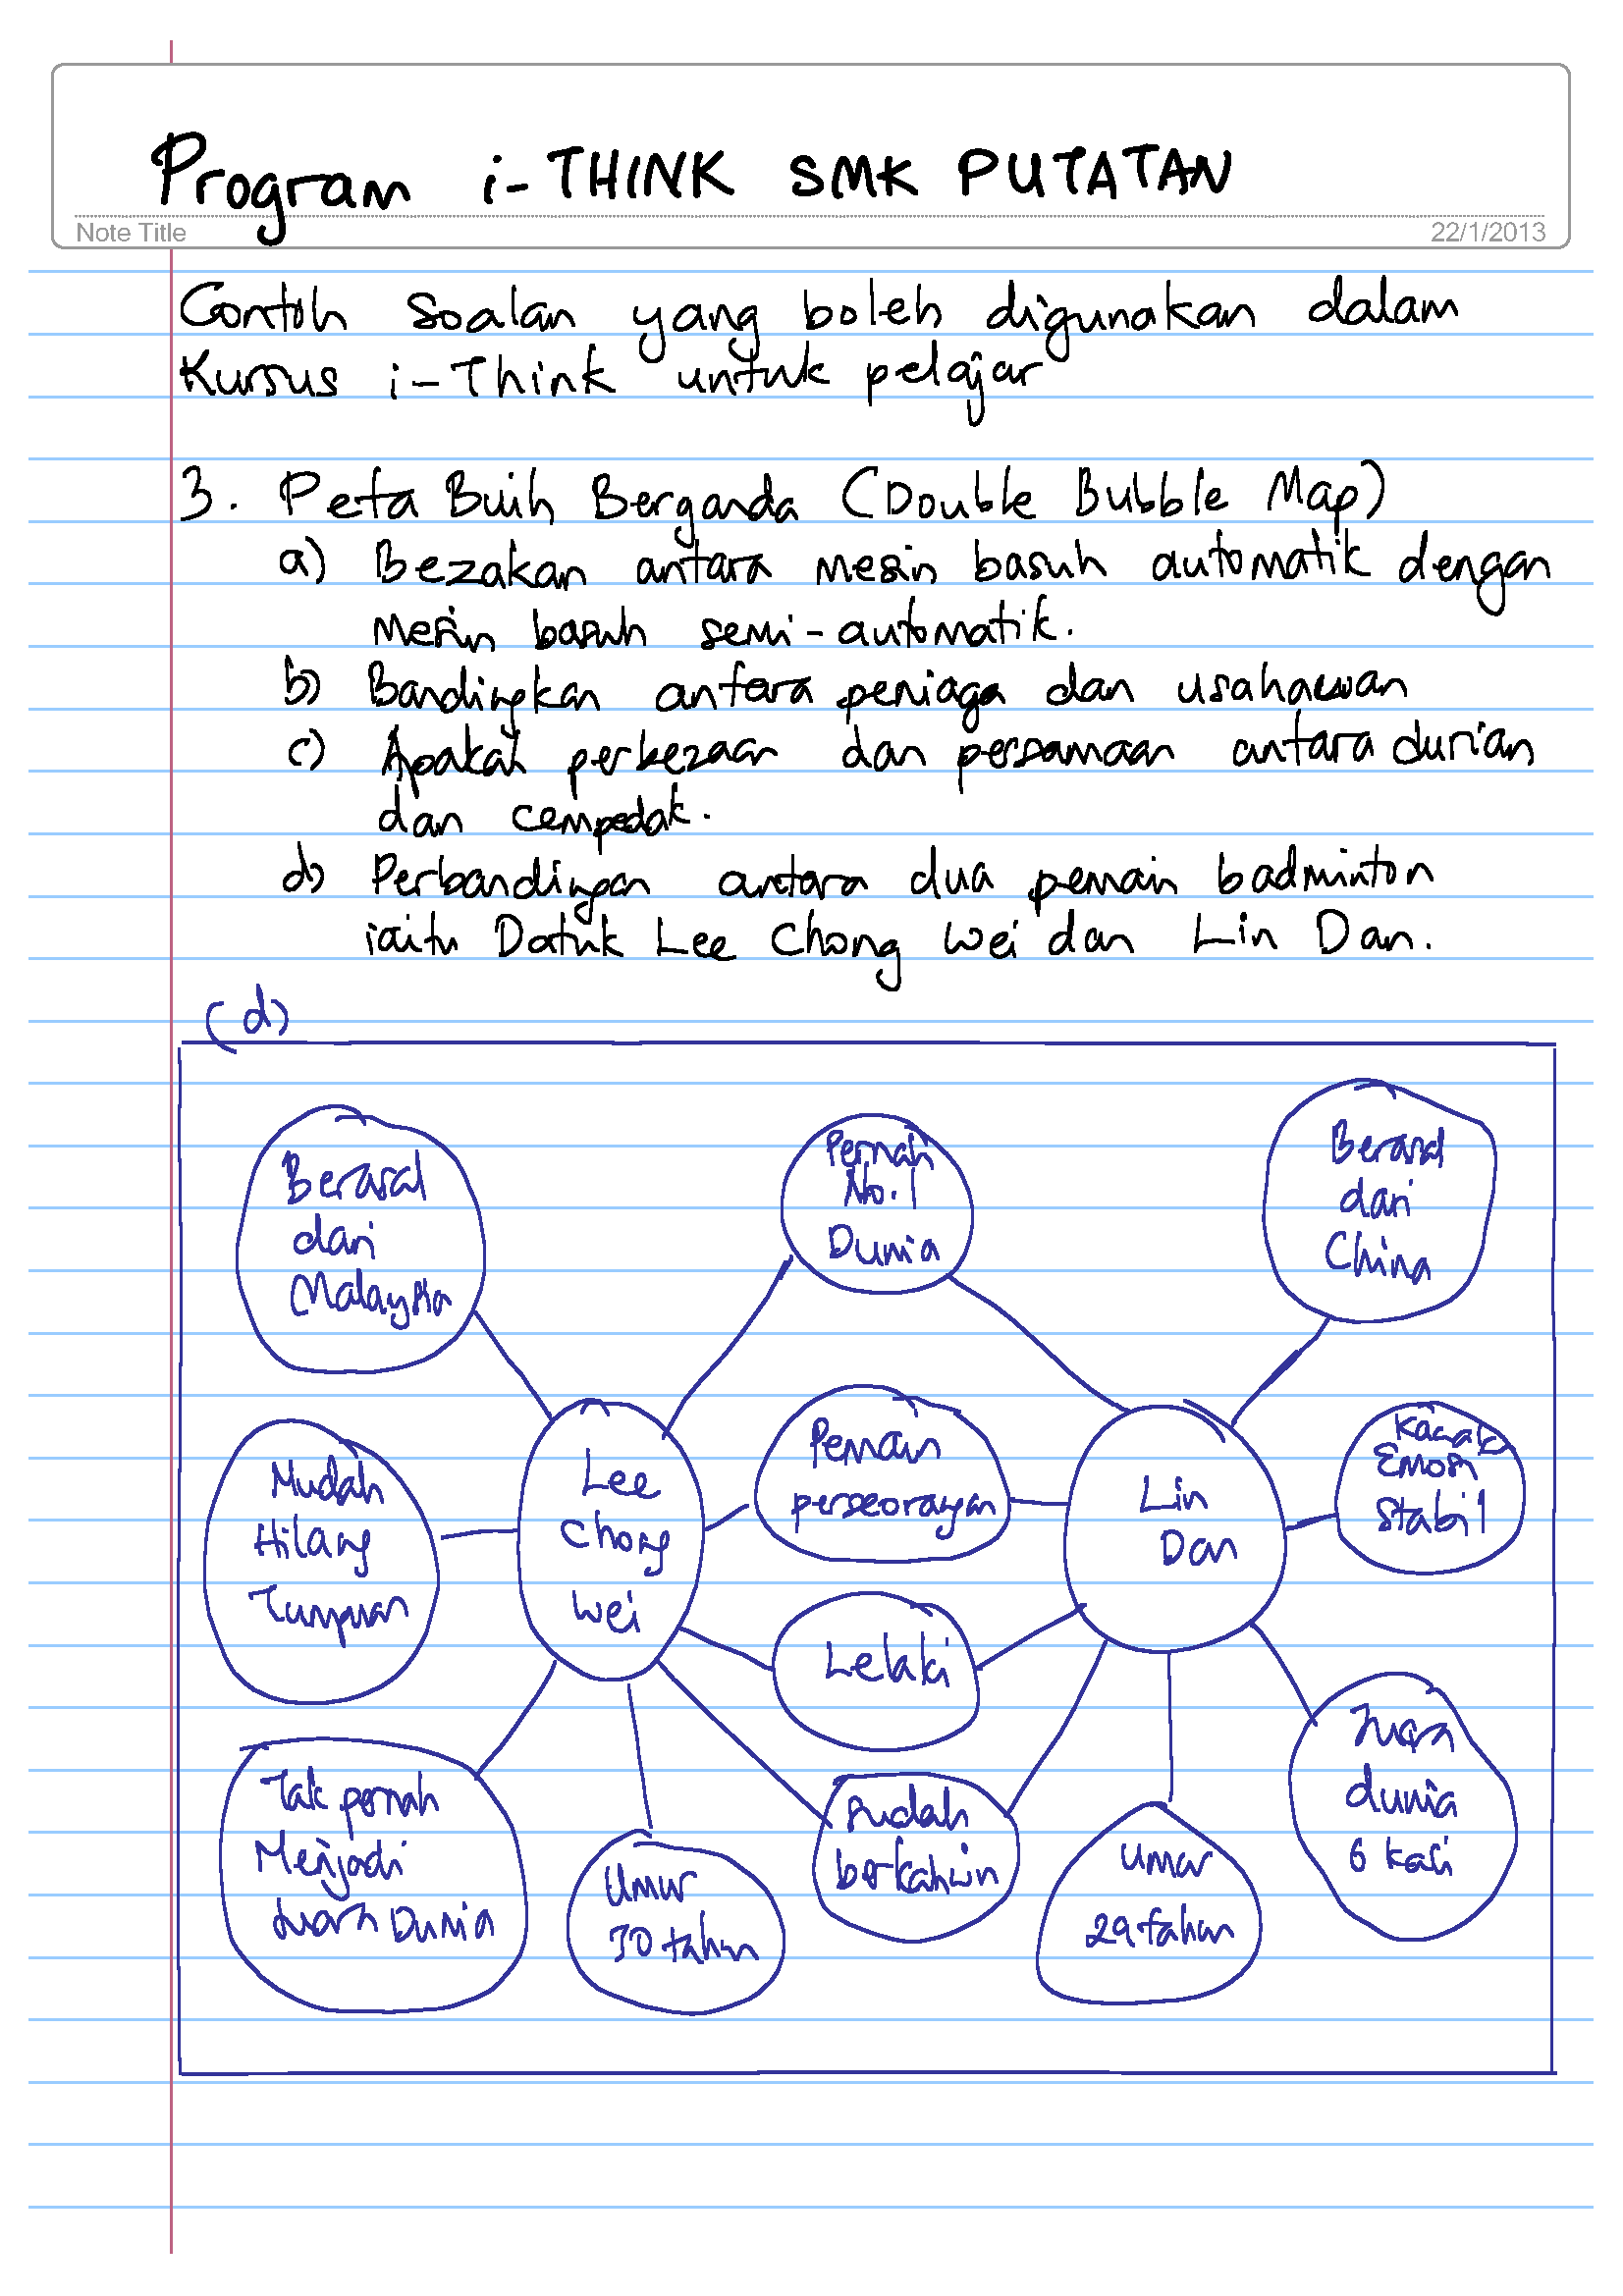 Program i-THINK SMK PUTATAN
Note Title
22/1/2013
Contoh soalan yang boleh digunakan dalam
Kursus i-Think untuk pelajar
3. Peta Buih Berganda (Double Bubble Map)
a) Bezakan antara mesin basuh automatik dengan
mesin basuh semi-automatik.
b) Bandingkan antara peniaga dan usahawan
c) Apakah perbezaan dan persamaan antara durian
dan cempedak.
d) Perbandingan antara dua pemain badminton
iaitu Datuk Lee Chong Wei dan Lin Dan.
(d)
Berasal
dari
Malaysia
Pernah
No. 1
Dunia
Berasal
dari
China
Mudah
Hilang
Tumpuan
Lee
Chong
Wei
Pemain
perseorangan
Lin
Dan
Emosi
Stabil
Lelaki
Tak pernah
Menjadi
Juara Dunia
Umur
30 tahun
Sudah
berkahwin
Umur
29 tahun
Juara
dunia
6 kali